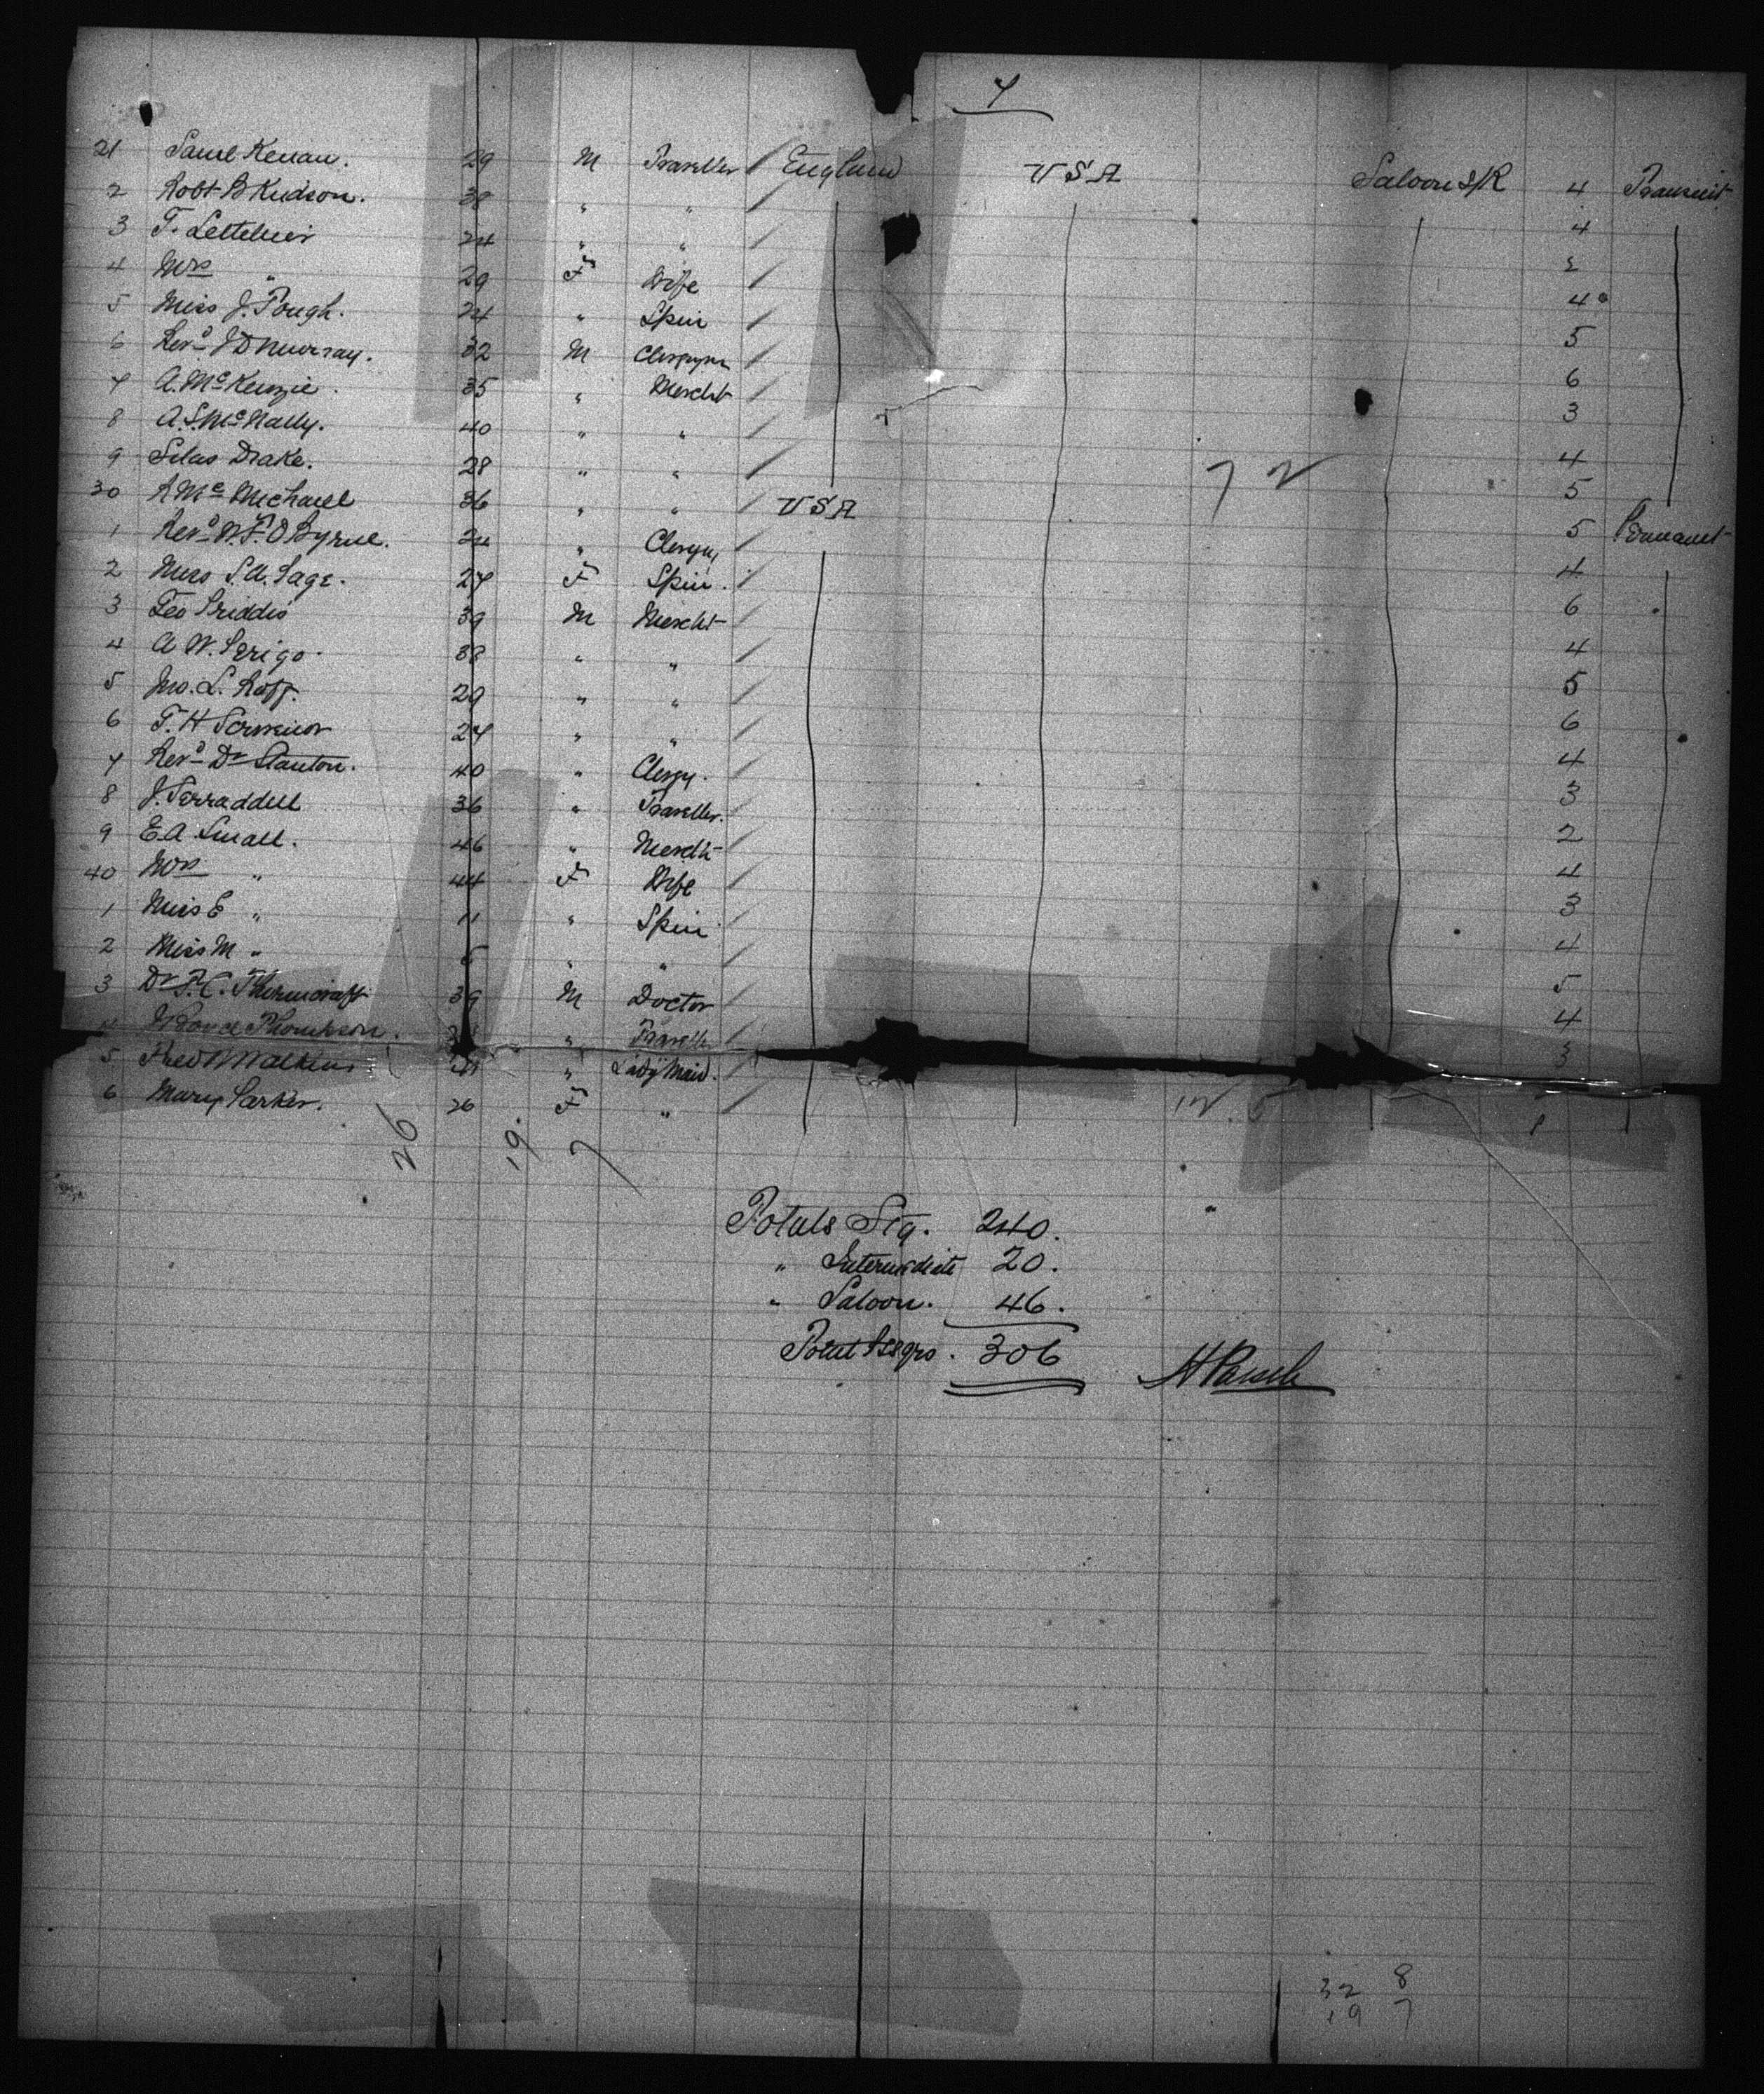 7
21 Saml Kenan. 29 M Traveller England U S A Saloon S/R 4 Transuit
2 Robt B Kudson. 38 " " 4
3 F. Lettelier 24 " " 2
4 Mrs " 29 F Wife 4
5 Miss J. Pough. 24 " Spin 5
6 Revd J D Murray. 32 M Clergym 6
7 A. McKenzie. 35 " Mercht 3
8 A. S. McNally. 40 " " 4
9 Silas Drake. 28 " " 5
30 R Mc Michaell 36 " " U S A 5 Permanet
1 Revd W. F. O Byrne. 24 " Clergy 4
2 Miss S. A. Sage. 27 F Spin. 6
3 Geo Priddis 39 M Mercht 4
4 A W. Perigo. 38 " " 5
5 Jno. L. Roff. 29 " " 6
6 F. H 27 " " 4
7 Revd Dr Stanton. 40 " Clergy. 3
8 J. Terraddell 36 " Traveller. 2
9 E. A. Small. 46 " Mercht 4
40 Mrs " 44 F Wife 3
1 Miss E " 11 " Spin 4
2 Miss M " " " 5
3 Dr 39 M Doctor 4
Thompson. " Travelle 3
5 Fred M Malkins " Lady Maid.
6 Mary Parker. 26 F "
72
12 5
26 19. 7
Totals Stg. 240.
" Intermediate 20.
" Saloon. 46.
Total Psgrs. 306
32 8
19 7